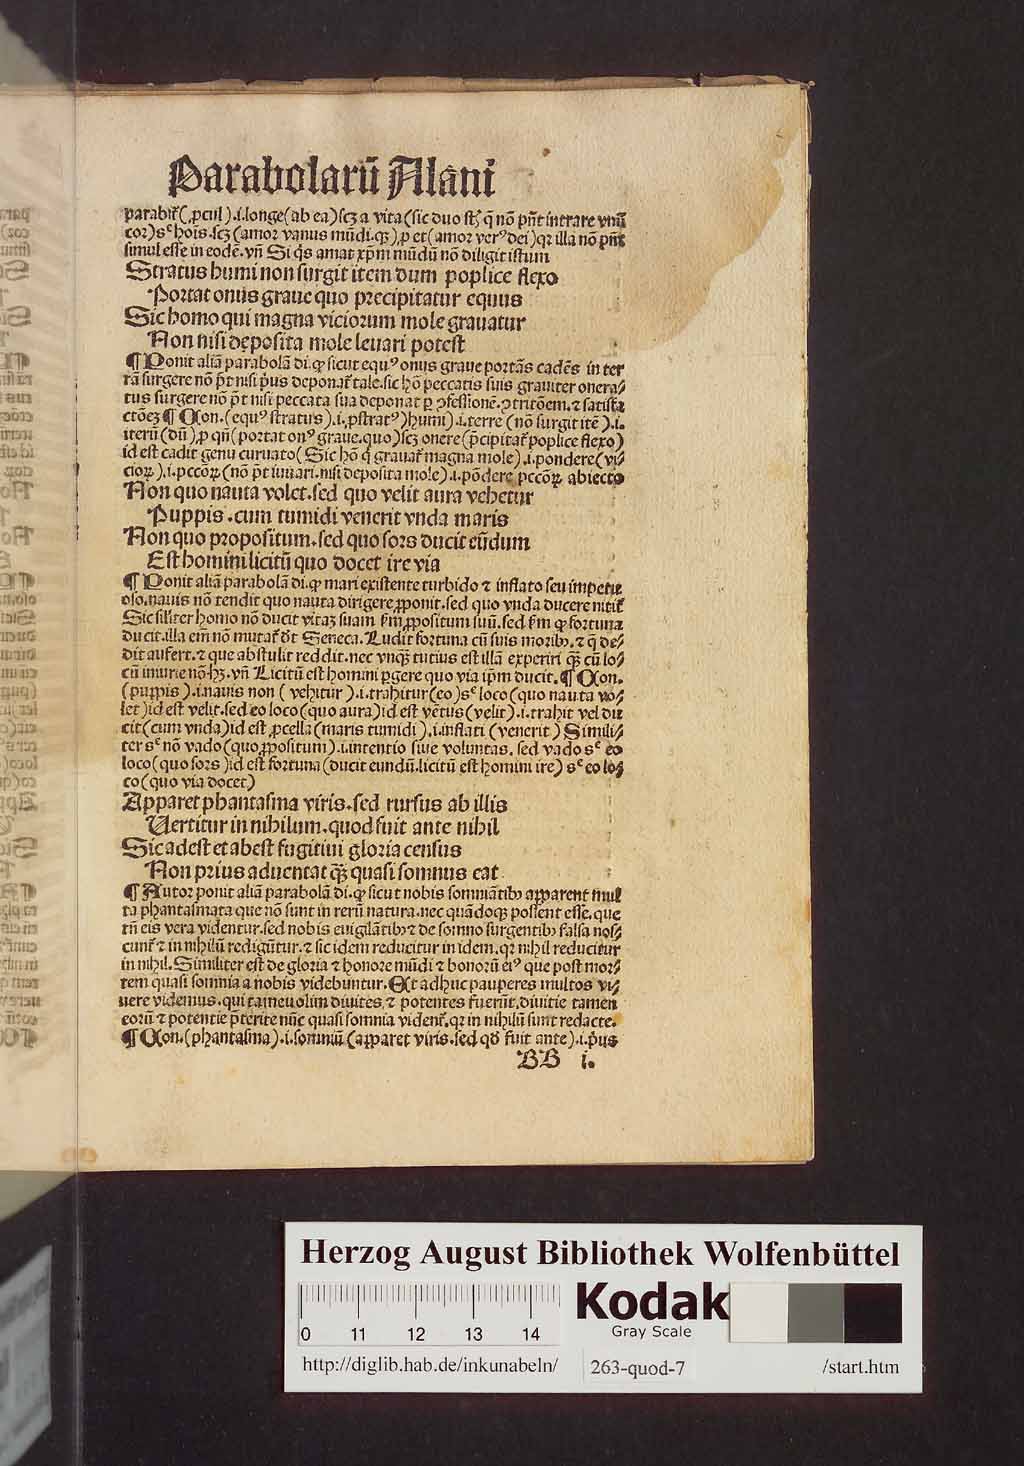 Parabolarū Alani
parabit᷑ (ꝓcul) .i. longe (ab ea) scꝫ a vita (sic duo st᷑ q̄ nō pn̄t intrare vnū
cor) sꝫ hois. scꝫ (amor vanus mūdi. qꝫ) ꝓ et (amor verꝰ dei) qꝛ illa nō pn̄t
simul esse in eodē. vn̄ Si qͥs amat xp̄m mūdū nō diligit istum
Stratus humi non surgit item dum poplice flexo
Portat onus graue quo precipitatur equus
Sic homo qui magna viciorum mole grauatur
Non nisi deposita mole leuari potest
¶ Ponit aliā parabolā di. ꝙ sicut equꝰ onus graue portās cadēs in ter
rā surgere nō p̄t nisi pͥus deponat᷑ tale. sic hō peccatis suis grauiter onera⸗
tus surgere nō p̄t nisi peccata sua deponat ꝑ ꝯfessionē. ꝯtritōem. ⁊ satisfa
ctōeꝫ ¶ Con. (equꝰ stratus) .i. ꝓstratꝰ (humi) .i. terre (nō surgit itē) .i.
iterū (dū) ꝓ qn̄ (portat onꝰ graue. quo) scꝫ onere (p̄cipitat᷑ poplice flexo)
id est cadit genu curuato (Sic hō qͥ grauat᷑ magna mole) .i. pondere (vi⸗
cioꝝ) .i. pccōꝝ (nō p̄t iuuari. nisi deposita mole) .i. pōdere pccōꝝ abiecto
Non quo nauta volet. sed quo velit aura vehetur
Puppis. cum tumidi venerit vnda maris
Non quo propositum. sed quo sors ducit eūdum
Est homini licitū quo docet ire via
¶ Ponit aliā parabolā di. ꝙ mari existente turbido ⁊ inflato seu impetu
oso. nauis nō tendit quo nauta dirigere ꝓponit. sed quo vnda ducere nitit᷑
Sic sil̓iter homo nō ducit vitaꝫ suam km̄ ꝓpositum suū. sed km̄ ꝙ fortuna
ducit. illa em̄ nō mutat᷑ vt̄ Seneca. Ludit fortuna cū suis moribꝫ. ⁊ q̄ de⸗
dit aufert. ⁊ que abstulit reddit. nec vnqꝫ tutius est illā experiri qꝫ cū lo⸗
cū iniurie nō hꝫ. vn̄ Licitū est homini ꝑgere quo via ip̄m ducit. ¶ Con.
(puppis) .i. nauis non (vehitur) .i. trahitur (eo) sꝫ loco (quo nauta vo⸗
let) id est velit. sed eo loco (quo aura) id est vētus (velit) .i. trahit vel du
cit (cum vnda) id est ꝓcella (maris tumidi) .i. inflati (venerit) Simili⸗
ter sꝫ nō vado (quo ꝓpositum) .i. intentio siue voluntas. sed vado sꝫ eo
loco (quo sors) id est fortuna (ducit eundū. licitū est homini ire) sꝫ eo lo⸗
co (quo via docet)
Apparet phantasma viris. sed rursus ab illis
Uertitur in nihilum. quod fuit ante nihil
Sic adest et abest fugitiui gloria census
Non prius aduentat qꝫ quasi somnus eat
¶ Autor ponit aliā parabolā di. ꝙ sicut nobis somniātibꝫ apparent mul
ta phantasmata que nō sunt in rerū natura. nec quādoqꝫ possent esse. que
tn̄ eis vera videntur. sed nobis euigilātibꝫ ⁊ de somno surgentibꝫ falsa nos⸗
cunt᷑ ⁊ in nihilū redigūtur. ⁊ sic idem reducitur in idem. qꝛ nihil reducitur
in nihil. Similiter est de gloria ⁊ honore mūdi ⁊ bonorū eiꝰ que post mor⸗
tem quasi somnia a nobis videbuntur. Et adhuc pauperes multos vi⸗
uere videmus. qui tameu olim diuites ⁊ potentes fuerūt. diuitie tamen
eorū ⁊ potentie p̄terite nūc quasi somnia vident᷑. qꝛ in nihilū sunt redacte.
¶ Con. (phantasma) .i. somniū (apparet viris. sed qd̄ fuit ante) .i. pͥus
BB i.
Herzog August Bibliothek Wolfenbüttel
0 11 12 13 14
Kodak
Gray Scale
http://diglib.hab.de/inkunabeln/ 263-quod-7 /start.htm